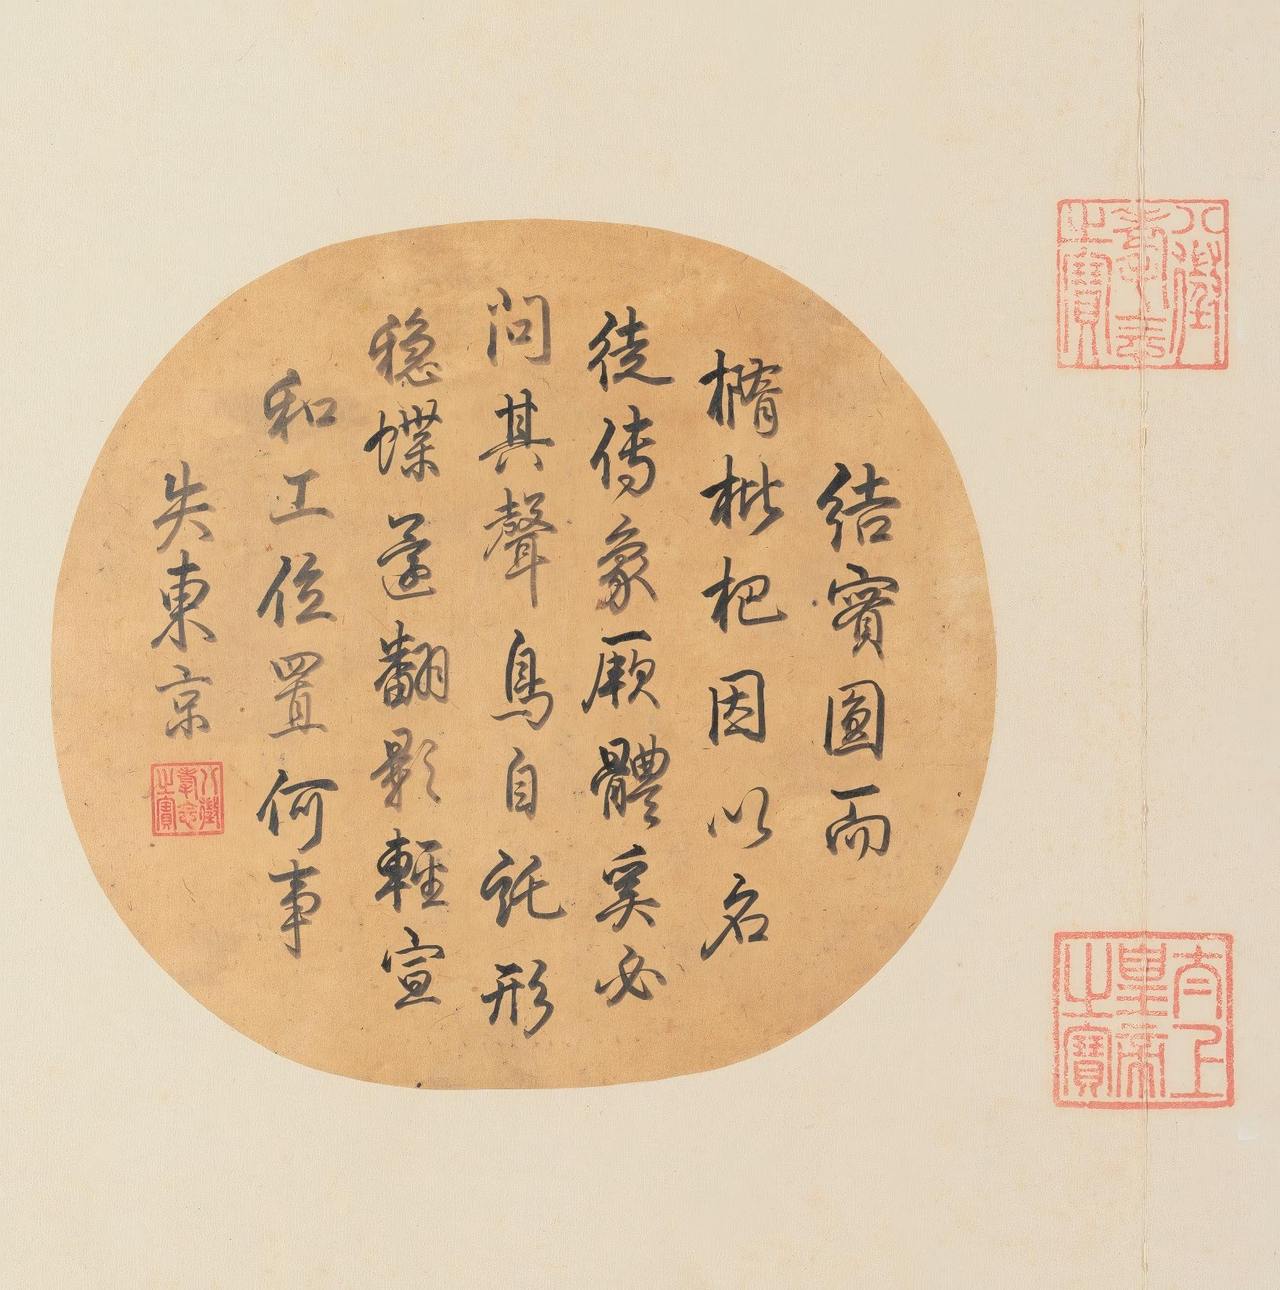 結實圓而
橢枇杷因以名
徒傳象厥體奚必
問其聲鳥自託形
穩蝶還翻影輕宣
和工位置何事
失東京
八徵耄念之寶
太上皇帝之寶
八徵耄念之寶